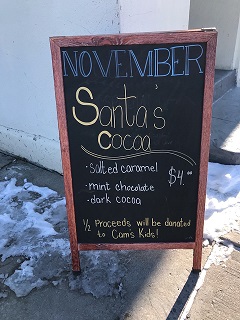 NOVEMBER
Santa's
Cocoa
• salted caramel
• mint chocolate $4.00
• dark cocoa
½ Proceeds will be donated
to Cam's Kids!